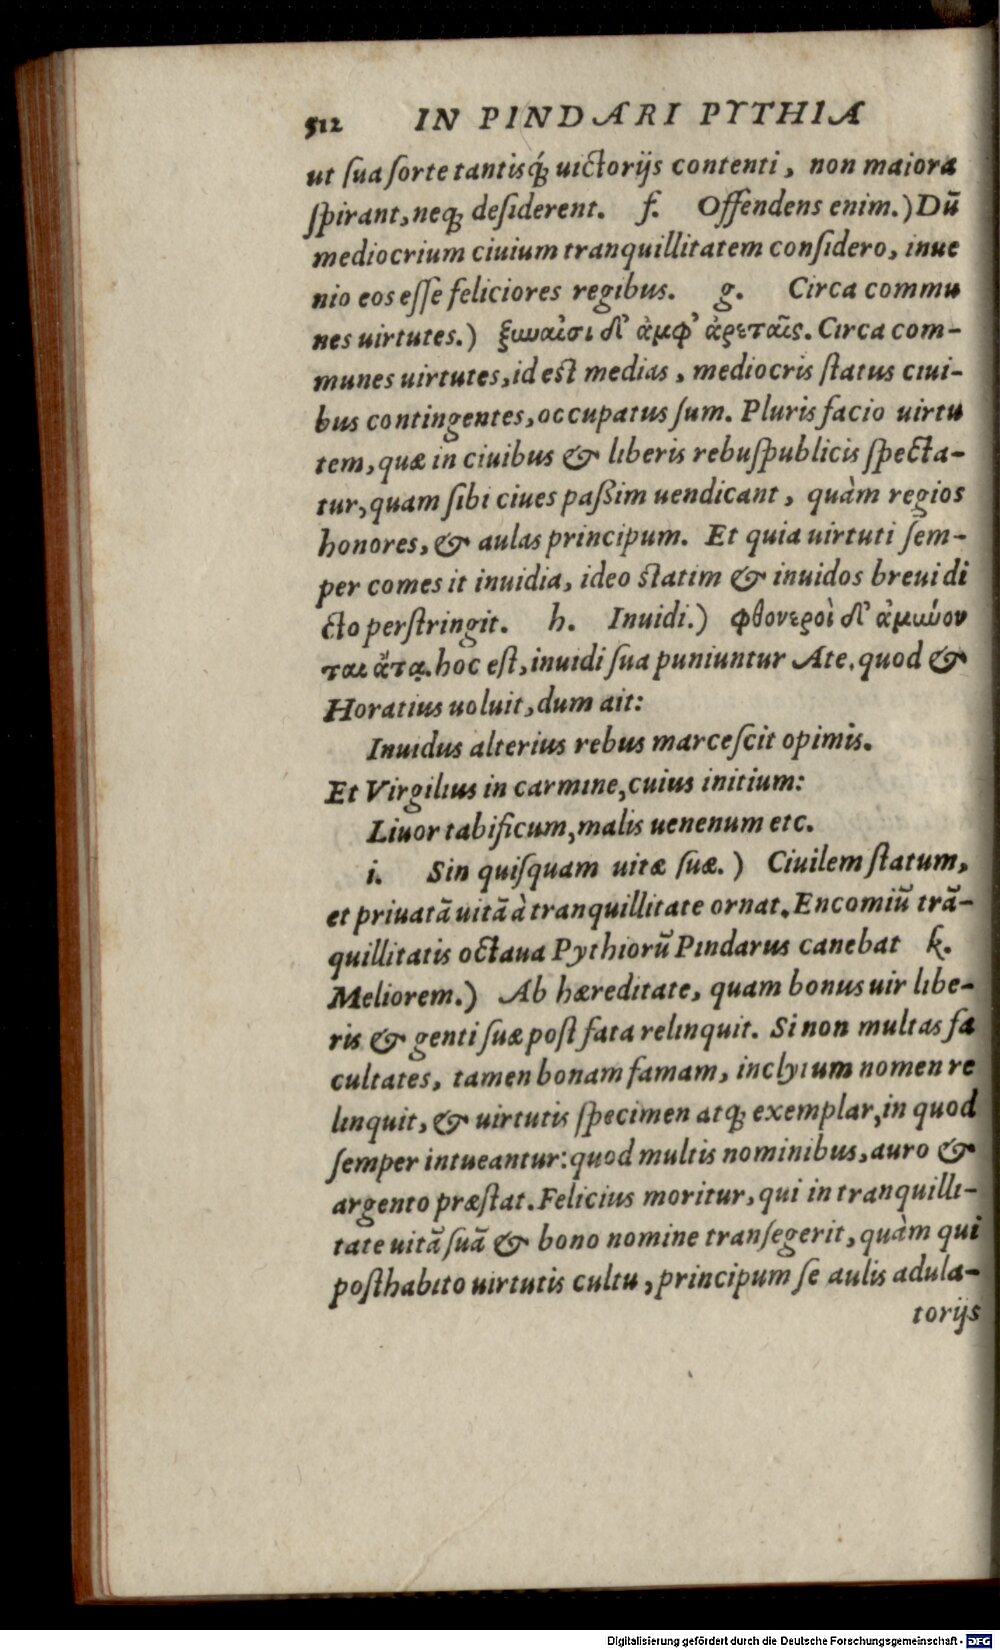 512 IN PINDARI PYTHIA
ut sua sorte tantisq́; uictorijs contenti, non maiora
spirant, neq; desiderent. f. Offendens enim.) Dũ
mediocrium ciuium tranquillitatem considero, inue
nio eos esse feliciores regibus. g. Circa commu
nes uirtutes.) ξυναῖσι δ' ἀμφ' ἀρεταῖς. Circa com-
munes uirtutes, id est medias, mediocris status ciui-
bus contingentes, occupatus sum. Pluris facio uirtu
tem, quæ in ciuibus & liberis rebuspublicis specta-
tur, quam sibi ciues paßim uendicant, quàm regios
honores, & aulas principum. Et quia uirtuti sem-
per comes it inuidia, ideo statim & inuidos breui di
cto perstringit. h. Inuidi.) φθονεροὶ δ' ἀμύνον
ται ἄτᾳ. hoc est, inuidi sua puniuntur Ate, quod &
Horatius uoluit, dum ait:
Inuidus alterius rebus marcescit opimis.
Et Virgilius in carmine, cuius initium:
Liuor tabificum, malis uenenum etc.
i. Sin quisquam uitæ suæ.) Ciuilem statum,
et priuatã uitã à tranquillitate ornat. Encomiũ trã-
quillitatis octaua Pythiorũ Pindarus canebat k.
Meliorem.) Ab hæreditate, quam bonus uir libe-
ris & genti suæ post fata relinquit. Si non multas fa
cultates, tamen bonam famam, inclytum nomen re
linquit, & uirtutis specimen atq; exemplar, in quod
semper intueantur: quod multis nominibus, auro &
argento præstat. Felicius moritur, qui in tranquilli-
tate uitã suã & bono nomine transegerit, quàm qui
posthabito uirtutis cultu, principum se aulis adula-
torijs
Digitalisierung gefördert durch die Deutsche Forschungsgemeinschaft - DFG